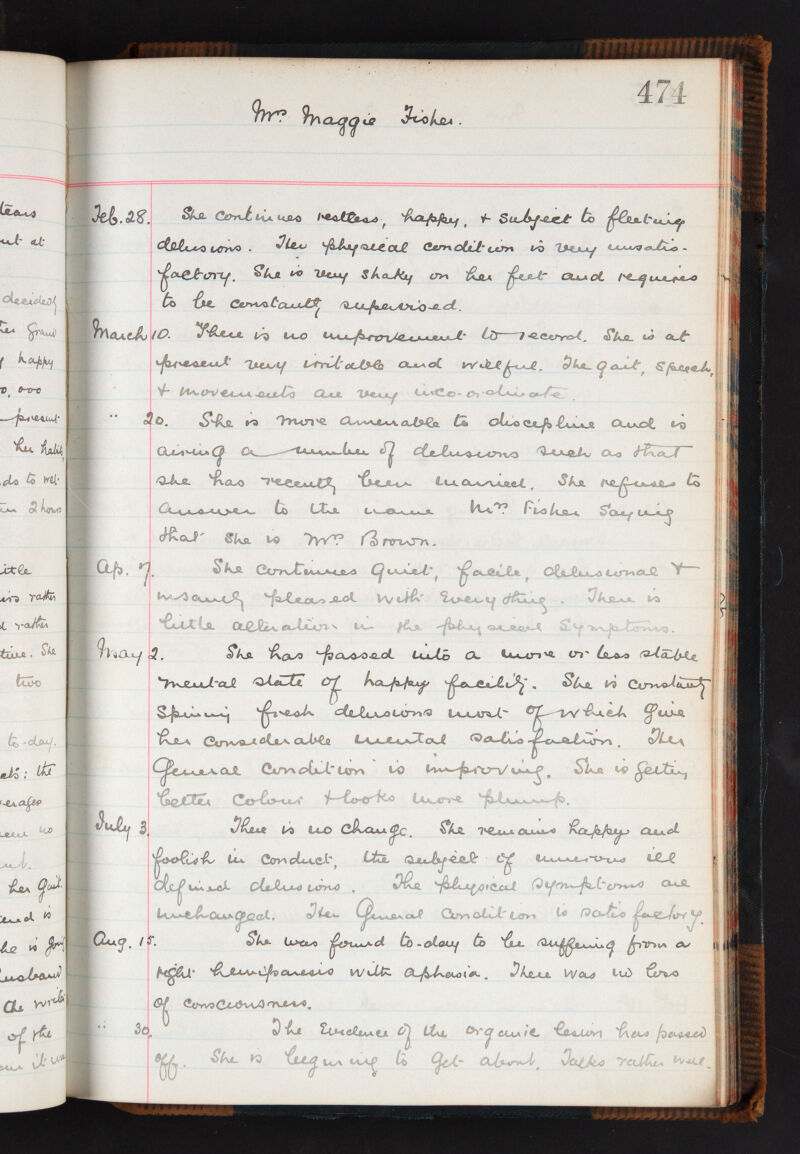 tears
decidedly
grand
happy
0,000
present
her habits,
ds to wet
2 hours
little
rather
rather
tive. She
two
to-day.
the
no
her gait.
and is
he is
husband
of the
474
Mrs. Maggie Fisher.
Feb. 28. She continues restless, happy, & subject to fleeting
delusions. Her physical condition is very unsatis-
factory. She is very shaky on her feet and requires
to be constantly supervised.
March 10. There is no improvement to record. She is at
present very irritable and willful. The gait, speech,
& movements are very inco-ordinate.
" 20. She is more amenable to discipline and is
airing a number of delusions such as that
she has recently been married. She refuses to
answer to the name Mrs. Fisher saying
that she is Mrs. Brown.
Ap. 7. She continues quiet, facile, delusional &
insanely pleased with everything. There is
little alteration in the physical symptoms.
May 2. She has passed into a more or less stable
mental state of happy facility. She is constantly
spinning fresh delusions most of which give
her considerable mental satisfaction. Her
General condition is improving. She is getting
better colour & looks more plump.
July 3. There is no change. She remains happy and
foolish in conduct, the subject of numerous ill
defined delusions. The physical symptoms are
unchanged. Her General condition is satisfactory.
Aug. 15. She was found to-day to be suffering from a
right hemiparesis with aphasia. There was no loss
of consciousness.
" 30. The Evidence of the organic lesion has passed
off. She is beginning to get about, Talks rather well.